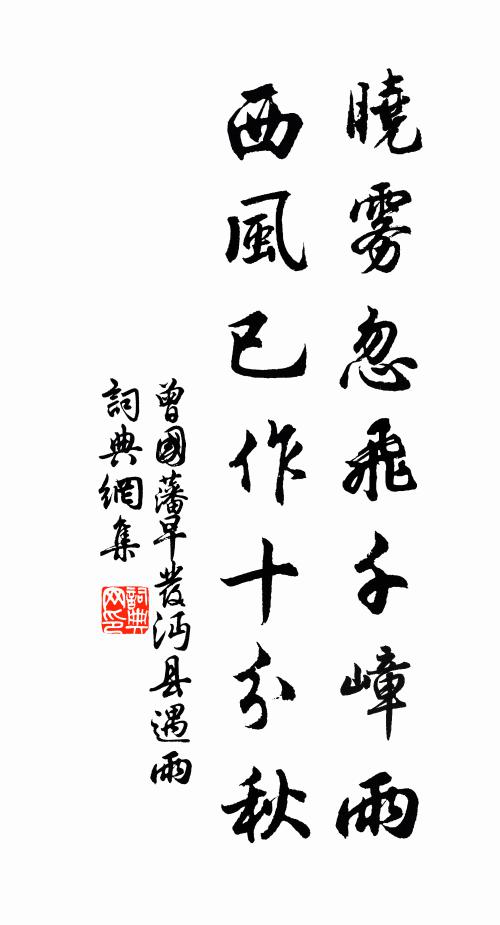 曉霧忽飛千嶂雨
西風已作十分秋
曾國藩早發沔县遇雨
詞典網集
詞典网印